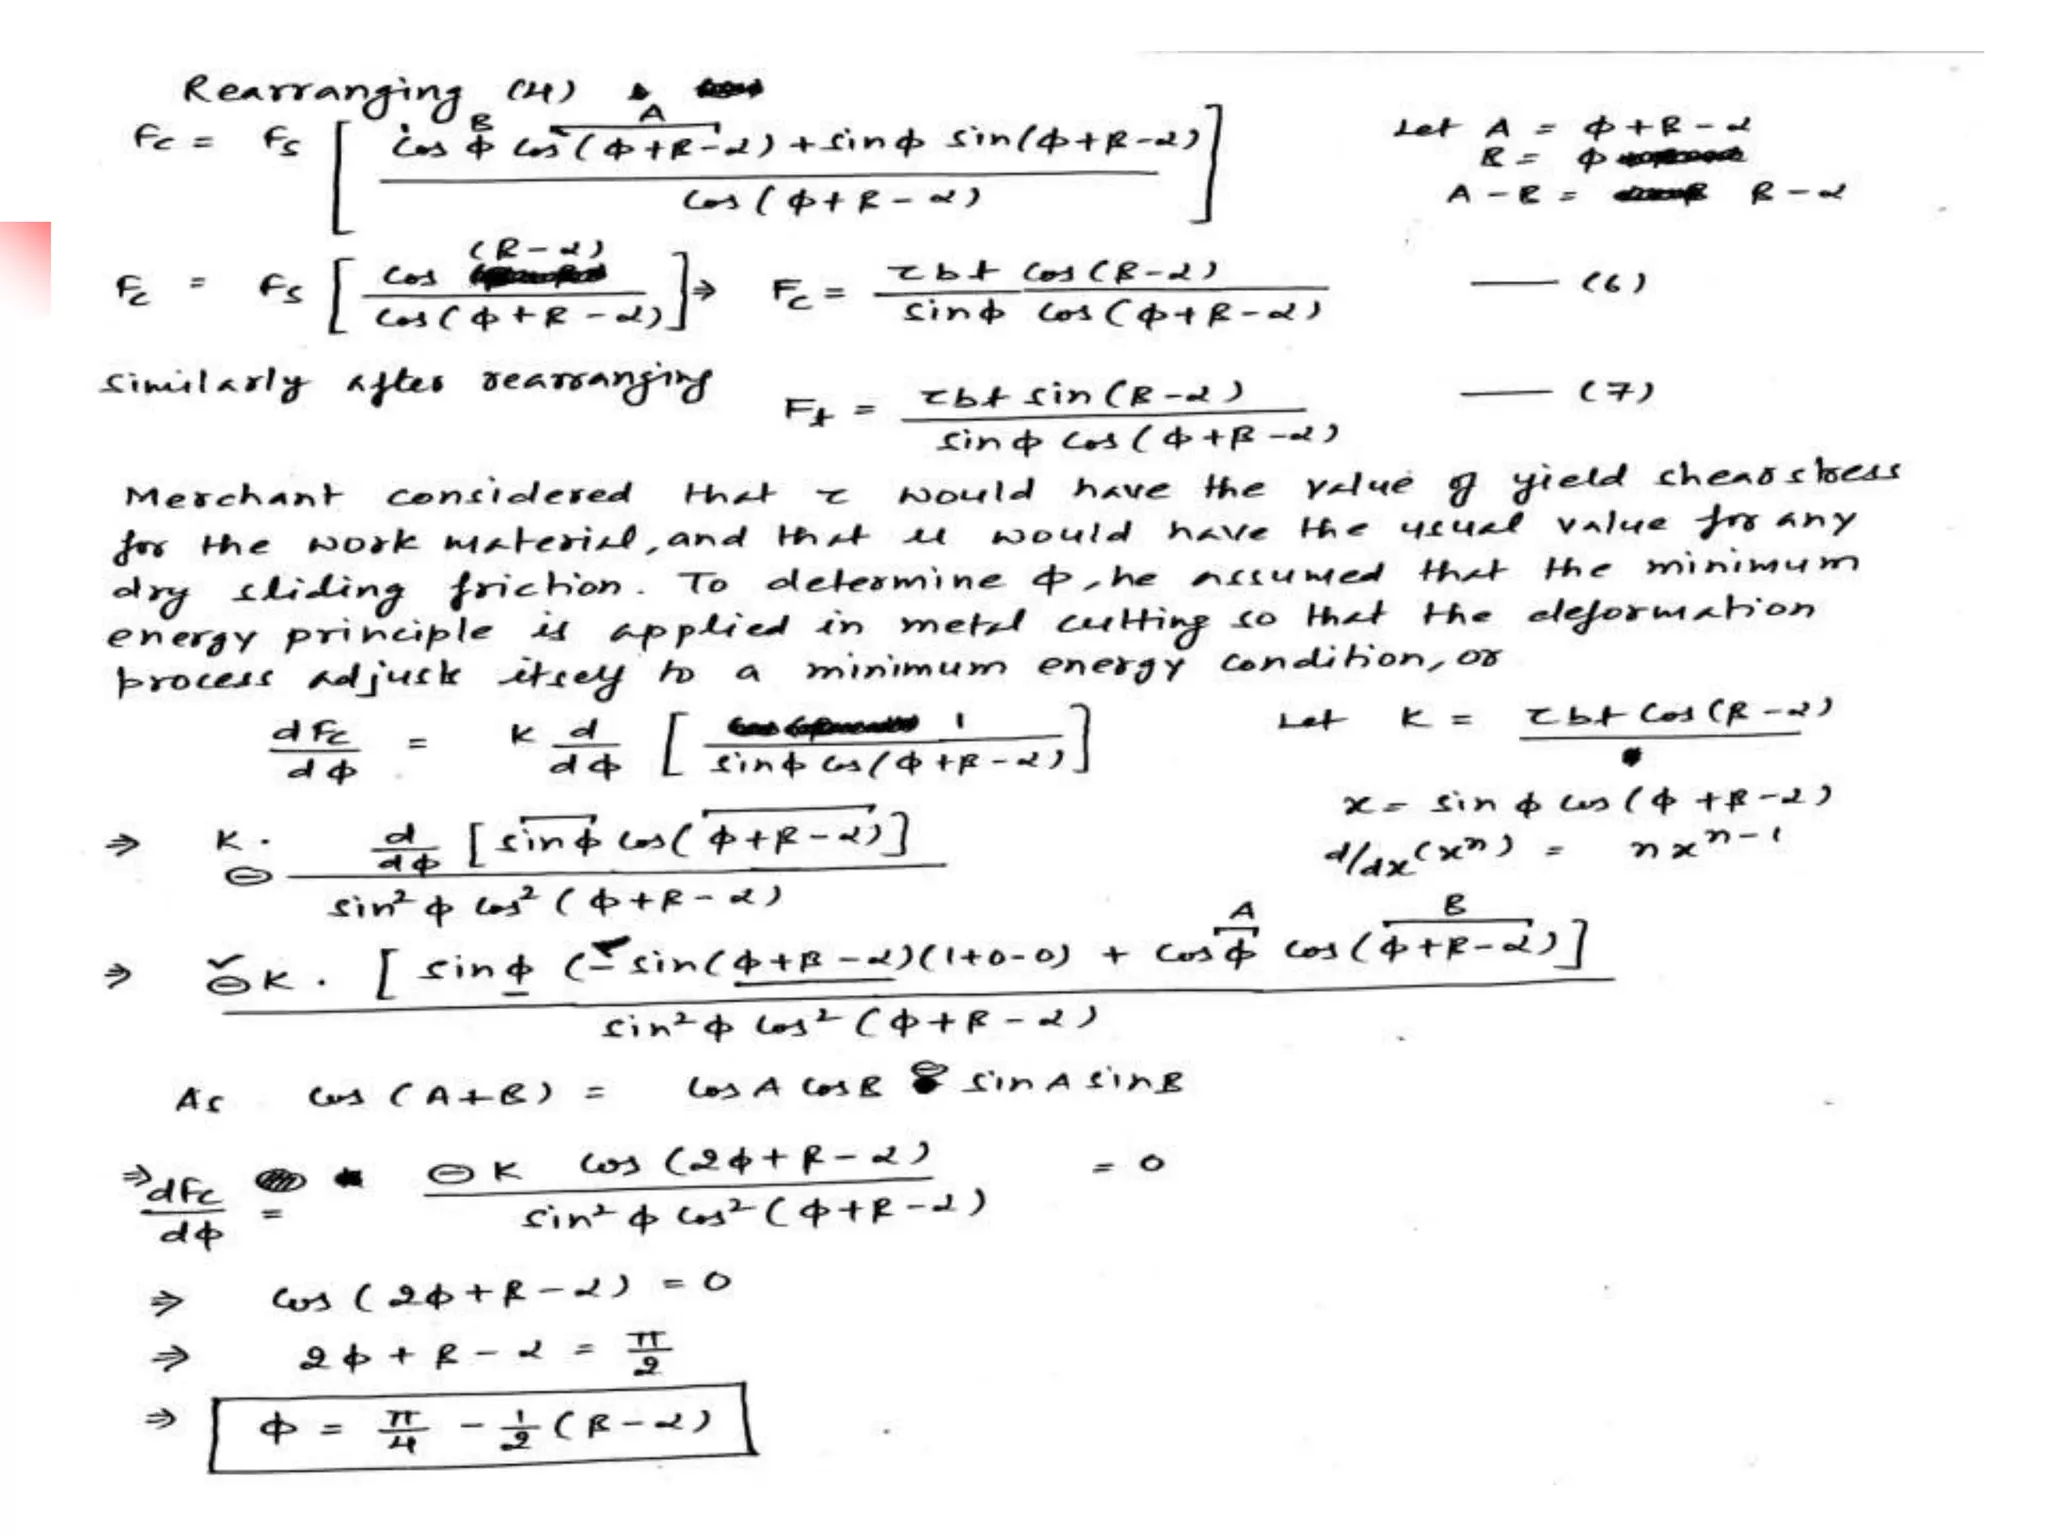 Rearranging (4)
Fc = Fs [ (cos φ cos (φ+β-α) + sin φ sin (φ+β-α)) / cos (φ+β-α) ]   B   A   Let A = φ+β-α
B = φ
A-B = β-α
Fc = Fs [ cos (β-α) / cos (φ+β-α) ] ⇒ Fc = τbt cos (β-α) / sin φ cos (φ+β-α) — (6)
Similarly after rearranging Ft = τbt sin (β-α) / sin φ cos (φ+β-α) — (7)
Merchant considered that τ would have the value of yield shear stress
for the work material, and that μ would have the usual value for any
dry sliding friction. To determine φ, he assumed that the minimum
energy principle is applied in metal cutting so that the deformation
process adjusts itself to a minimum energy condition, or
dFc/dφ = K d/dφ [ 1 / sin φ cos (φ+β-α) ]   Let K = τbt cos (β-α)
x = sin φ cos (φ+β-α)
⇒ ⊖ K . d/dφ [ sin φ cos (φ+β-α) ] / sin² φ cos² (φ+β-α)   d/dx (xⁿ) = n xⁿ⁻¹
⇒ ⊖ K . [ sin φ (- sin (φ+β-α) (1+0-0) + cos φ cos (φ+β-α) ] / sin² φ cos² (φ+β-α)   A   B
As cos (A+B) = cos A cos B ⊖ sin A sin B
⇒ dFc/dφ = ⊖ K cos (2φ+β-α) / sin² φ cos² (φ+β-α) = 0
⇒ cos (2φ+β-α) = 0
⇒ 2φ+β-α = π/2
⇒ φ = π/4 - 1/2 (β-α)